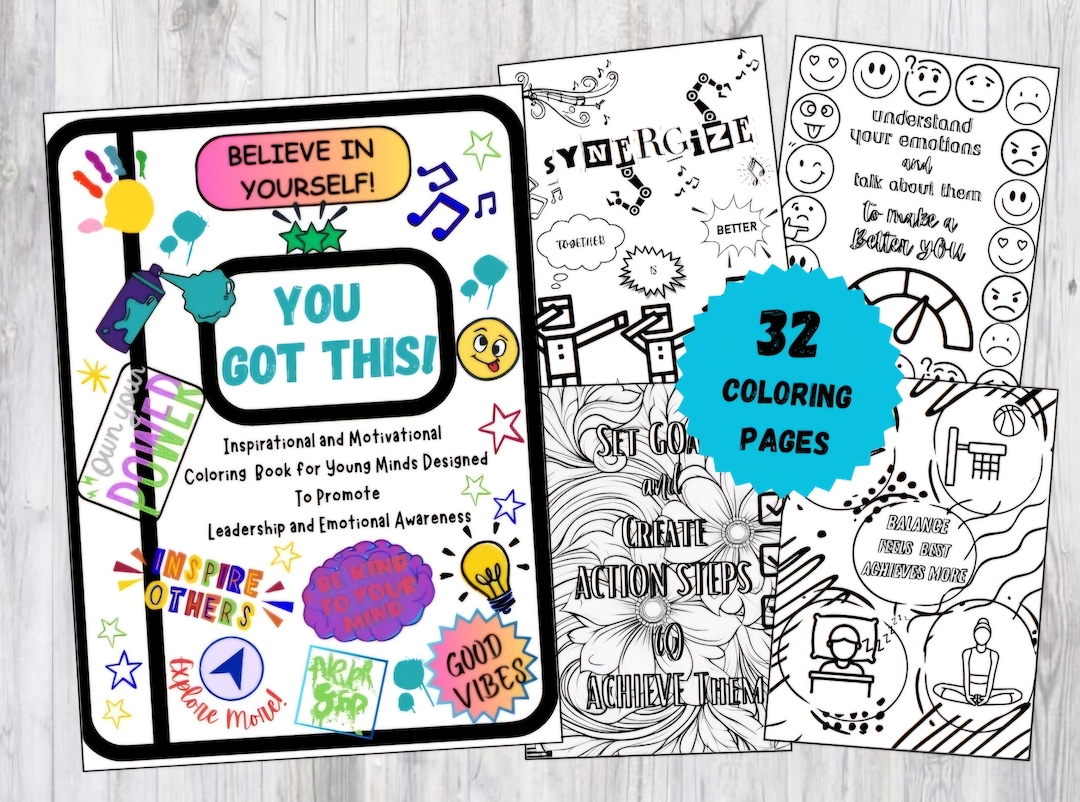 BELIEVE IN
YOURSELF!
YOU
GOT THIS!
Own your
POWER
Inspirational and Motivational
Coloring Book for Young Minds Designed
To Promote
Leadership and Emotional Awareness
INSPIRE
OTHERS
BE KIND
TO YOUR
MIND
Explore More!
GOOD
VIBES
SYNERGIZE
TOGETHER
IS
BETTER
understand
your emotions
and
talk about them
to make a
Better YOU
32
COLORING
PAGES
SET
and
CREATE
ACTION STEPS
TO
ACHIEVE THEM
BALANCE
FEELS BEST
ACHIEVES MORE